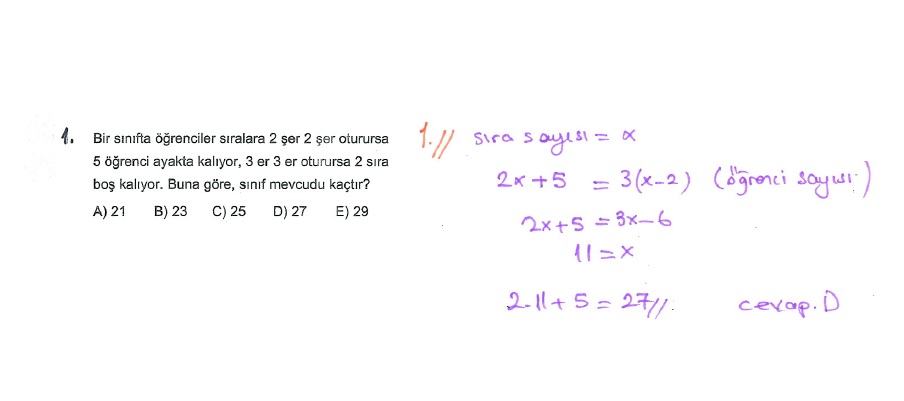 1. Bir sınıfta öğrenciler sıralara 2 şer 2 şer oturursa
5 öğrenci ayakta kalıyor, 3 er 3 er oturursa 2 sıra
boş kalıyor. Buna göre, sınıf mevcudu kaçtır?
A) 21 B) 23 C) 25 D) 27 E) 29
1.// sıra sayısı = x
2x+5 = 3(x-2) (öğrenci sayısı)
2x+5 = 3x-6
11 = x
2.11+5 = 27//.
cevap.D